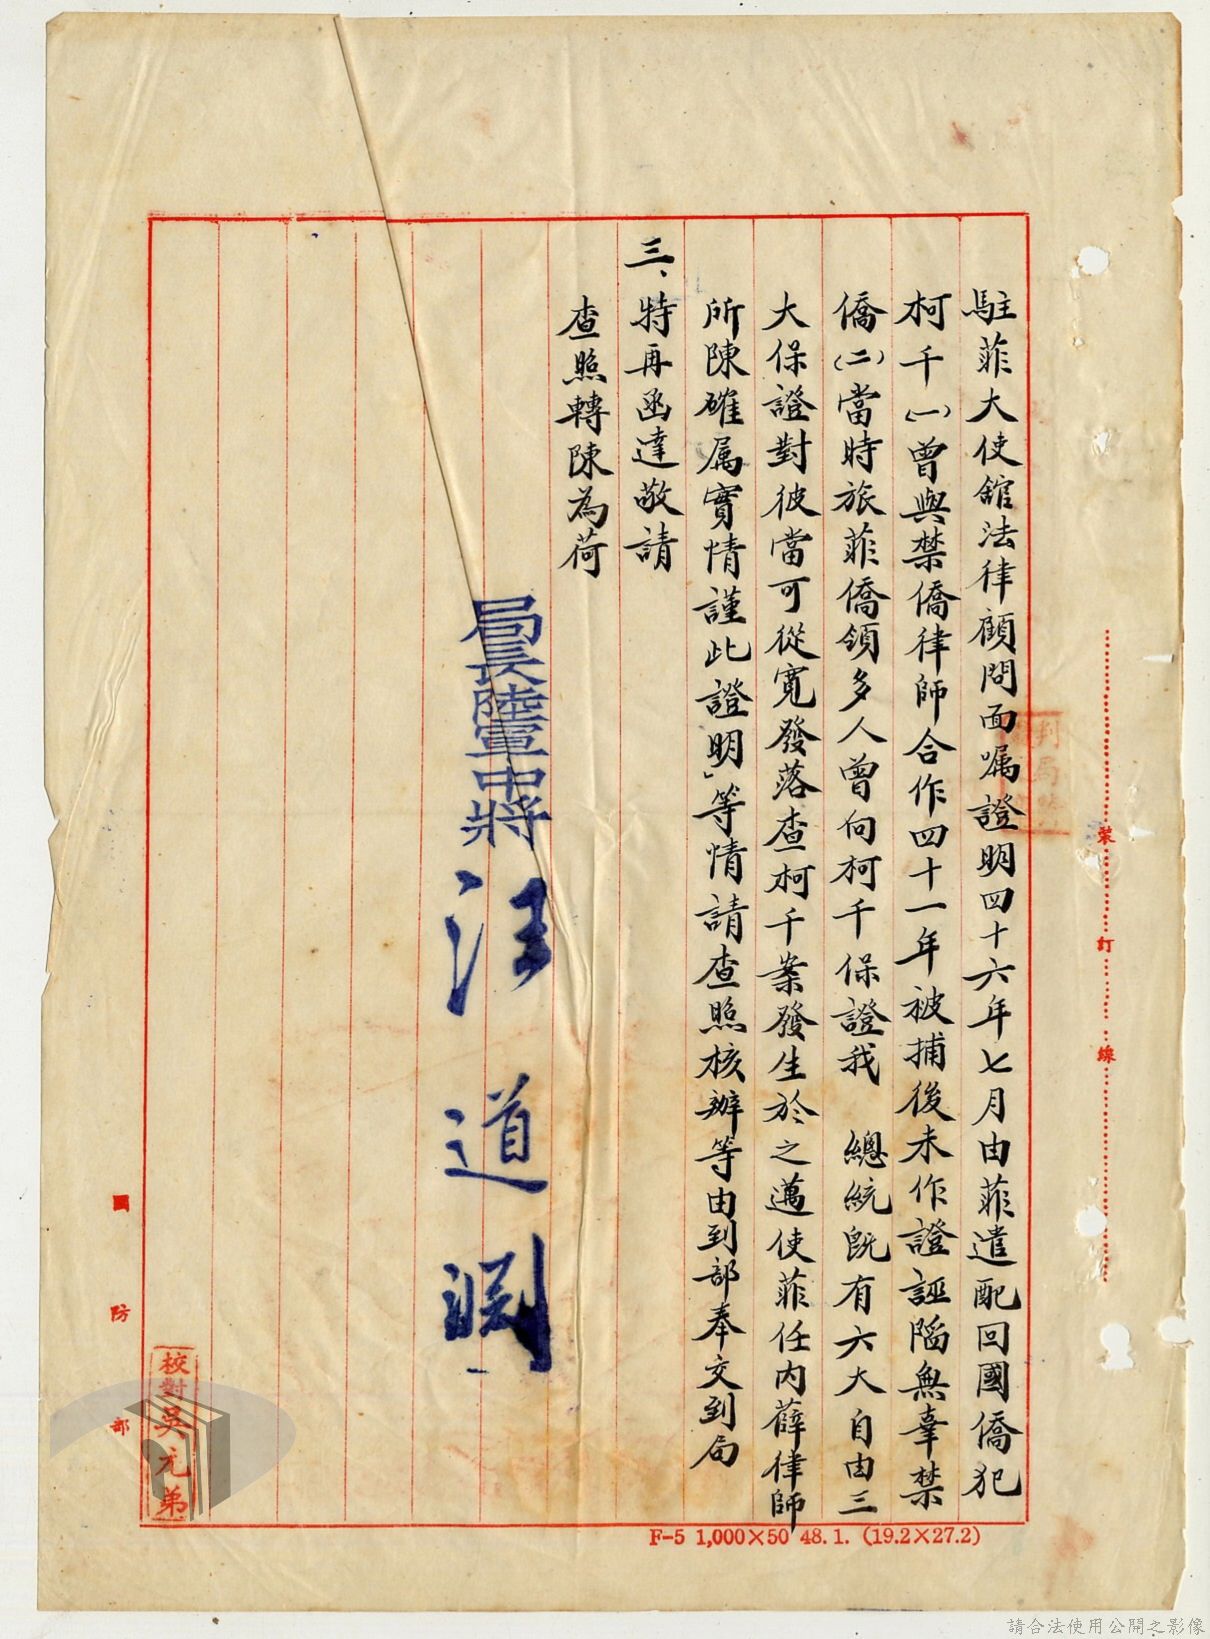 駐菲大使舘法律顧問面嘱證明四十六年七月由菲遣配回國僑犯
柯千(一)曾與禁僑律師合作四十一年被捕後未作證誣陷無辜禁
僑(二)當時旅菲僑領多人曾向柯千保證我　總統既有六大自由三
大保證對彼當可從寬發落查柯千案發生於之邁使菲任內薛律師
所陳確属實情謹此證明」等情請查照核辦等由到部奉交到局
三、特再函達敬請
查照轉陳為荷
局長陸軍中將汪道淵
校對吳元弟
國防部
裝訂線
F-5 1,000×50 48.1. (19.2×27.2)
請合法使用公開之影像